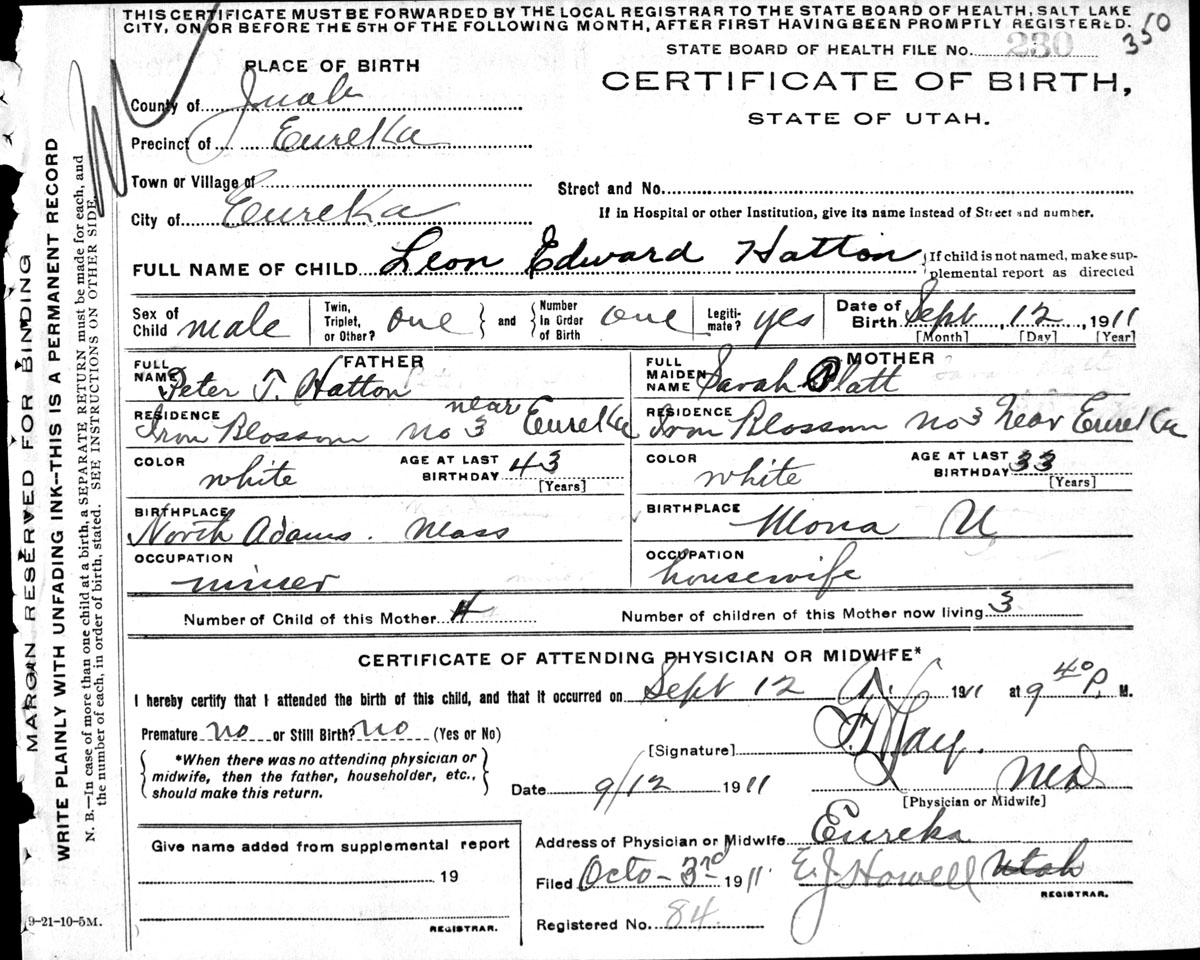 THIS CERTIFICATE MUST BE FORWARDED BY THE LOCAL REGISTRAR TO THE STATE BOARD OF HEALTH, SALT LAKE
CITY, ON OR BEFORE THE 5TH OF THE FOLLOWING MONTH, AFTER FIRST HAVING BEEN PROMPTLY REGISTERED.
350
STATE BOARD OF HEALTH FILE No. 230
CERTIFICATE OF BIRTH,
STATE OF UTAH.
PLACE OF BIRTH
County of Juab
Precinct of Eureka
Town or Village of
City of Eureka
Street and No.
If in Hospital or other Institution, give its name instead of Street and number.
FULL NAME OF CHILD Leon Edward Hatton
If child is not named, make sup-
plemental report as directed
Sex of Child male
Twin, Triplet, or Other? one and Number in Order of Birth one
Legiti-mate? yes
Date of Birth Sept, 12, 1911
[Month] [Day] [Year]
FATHER
FULL NAME Peter T. Hatton
RESIDENCE Iron Blossom no 3 near Eureka
COLOR white AGE AT LAST BIRTHDAY 43 [Years]
BIRTHPLACE North Adams. Mass
OCCUPATION miner
MOTHER
FULL MAIDEN NAME Sarah Platt
RESIDENCE Iron Blossom no 3 Near Eureka
COLOR white AGE AT LAST BIRTHDAY 33 [Years]
BIRTHPLACE Mona U
OCCUPATION housewife
Number of Child of this Mother 4 Number of children of this Mother now living 3
CERTIFICATE OF ATTENDING PHYSICIAN OR MIDWIFE*
I hereby certify that I attended the birth of this child, and that it occurred on Sept 12 1911 at 9 40 P. M.
Premature no or Still Birth? no (Yes or No)
*When there was no attending physician or
midwife, then the father, householder, etc.,
should make this return.
[Signature]
MD
Date 9/12 1911
[Physician or Midwife]
Give name added from supplemental report
19
REGISTRAR.
Address of Physician or Midwife Eureka
Utah
Filed Octo-3rd 1911 E.J. Howell
REGISTRAR.
Registered No. 84
9-21-10-5M.
MARGIN RESERVED FOR BINDING
WRITE PLAINLY WITH UNFADING INK--THIS IS A PERMANENT RECORD
N. B.—In case of more than one child at a birth, a SEPARATE RETURN must be made for each, and
the number of each, in order of birth, stated. SEE INSTRUCTIONS ON OTHER SIDE.